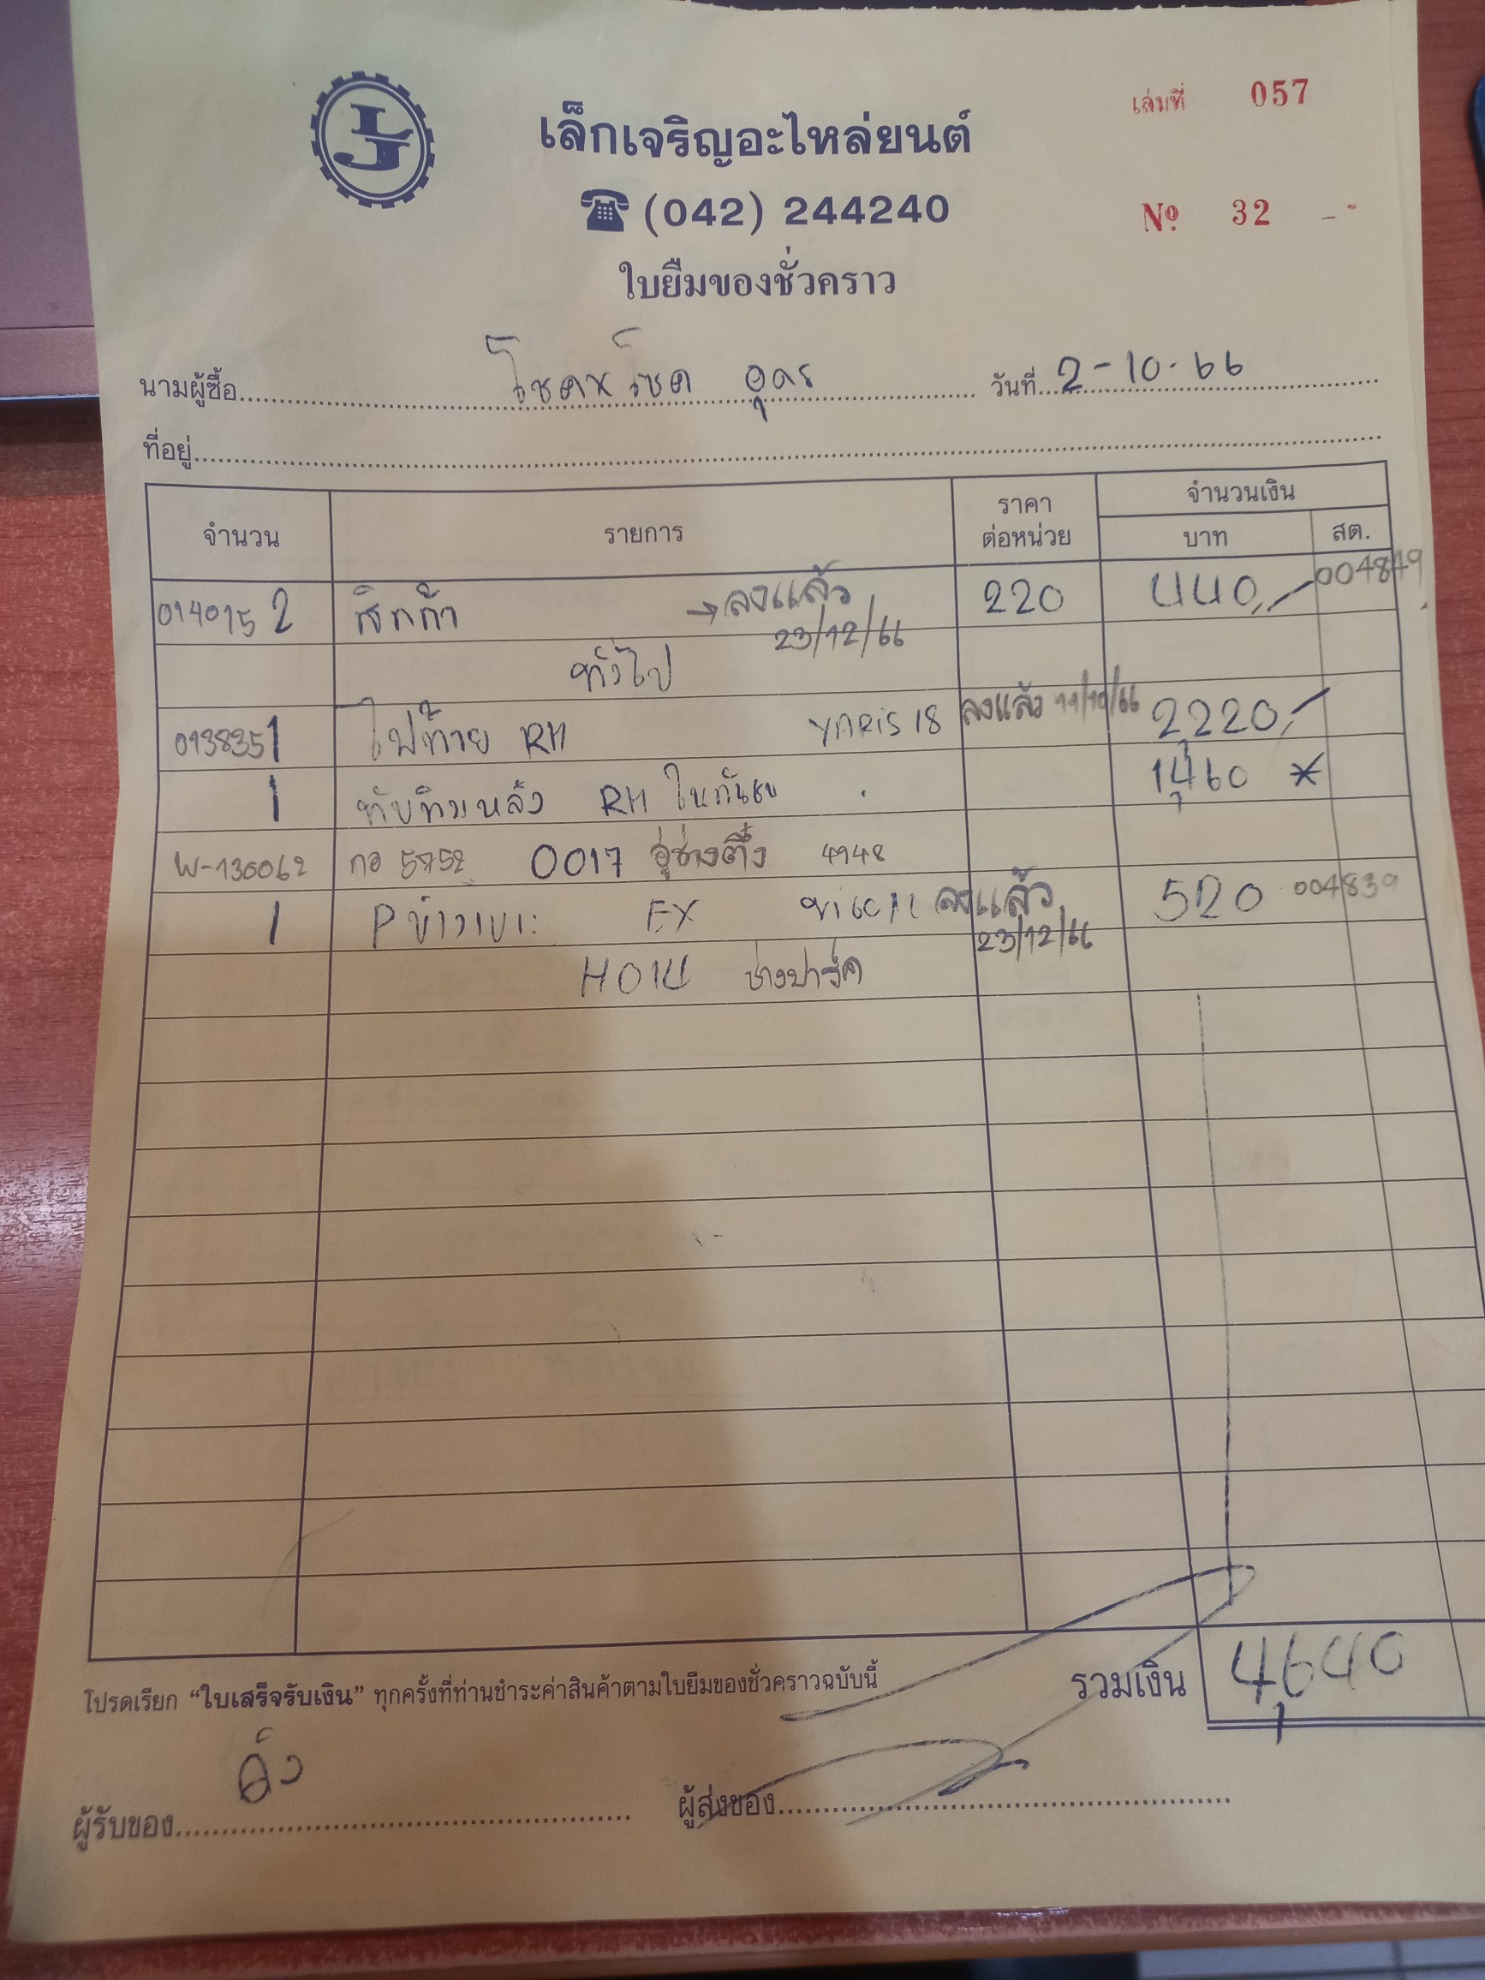 เล่มที่ 057
เล็กเจริญอะไหล่ยนต์
(042) 244240
Nº 32
ใบยืมของชั่วคราว
นามผู้ซื้อ โชคxโชค อุดร วันที่ 2-10-66
ที่อยู่
จำนวน รายการ ราคาต่อหน่วย จำนวนเงิน
บาท สต.
014015 2 →ลงแล้ว 220 440.- 004849
23/12/66
ทั่วไป
013835 1 ไฟท้าย RH YARIS 18 ลงแล้ว 11/10/66 2,220.-
1 ทับทิมหลัง RH ในกันชน 1,460 *
W-130062 กอ 5752 0017 อู่ช่างตึ๋ง 4948
1 EX ลงแล้ว 520 004839
23/12/66
ช่างปาร์ค
โปรดเรียก “ใบเสร็จรับเงิน” ทุกครั้งที่ท่านชำระค่าสินค้าตามใบยืมของชั่วคราวฉบับนี้ รวมเงิน 4,640
ผู้รับของ ผู้ส่งของ